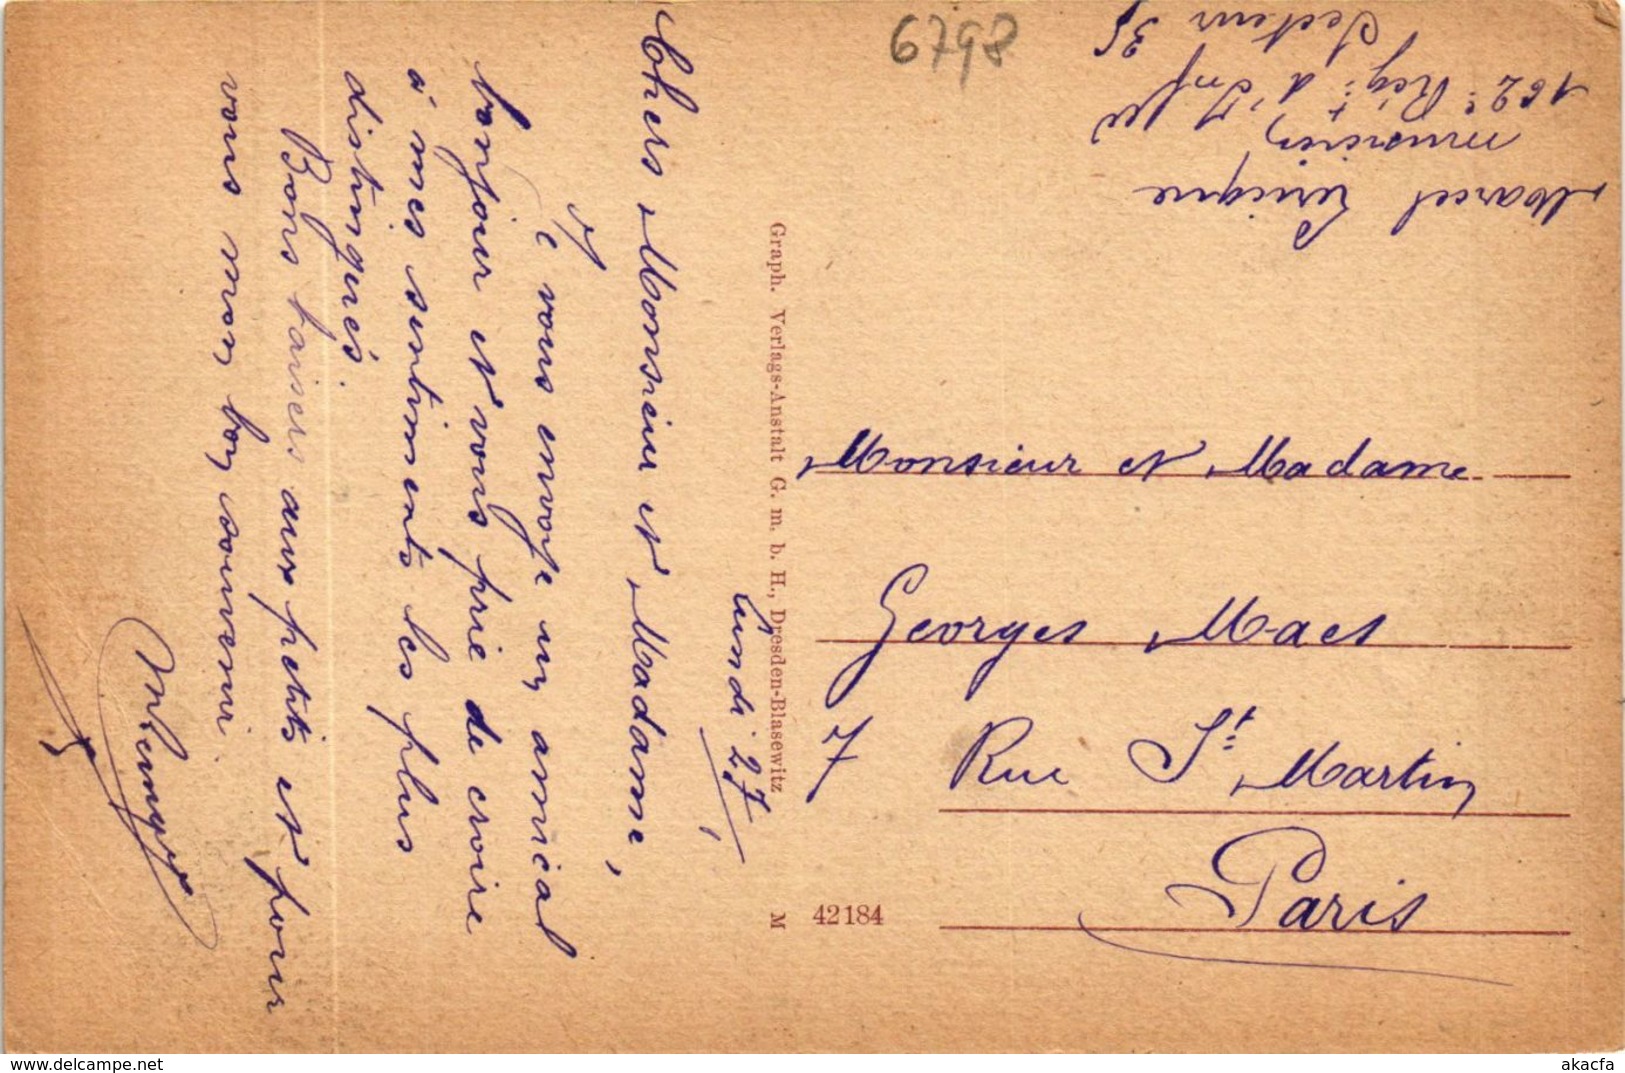 Lundi 27
Chers Monsieur et Madame,
Je vous envoie un amical
bonjour et vous prie de croire
à mes sentiments les plus
distingués.
Bons baisers aux petits et pour
vous mon bon souvenir
Graph. Verlags-Anstalt G. m. b. H., Dresden-Blasewitz
M 42184
6798
Marcel
musicien
162e Régt d'Infie
Secteur 35
Monsieur et Madame
Georges Maes
7 Rue St Martin
Paris
delcampe.net
akacfa